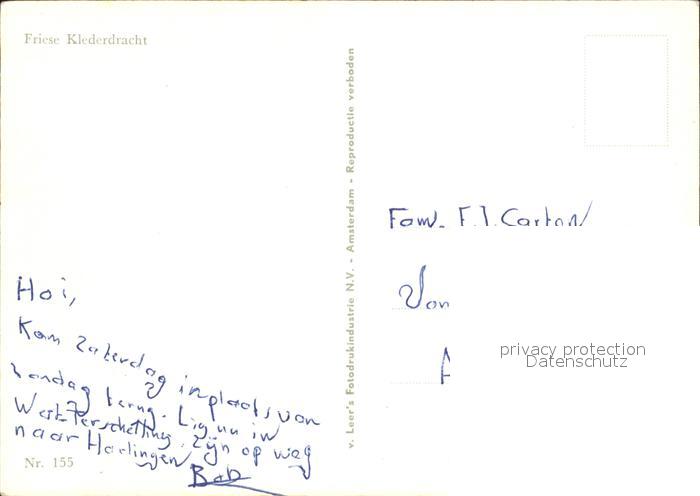 Friese Klederdracht
Hoi,
Kom zaterdag inplaats van
zondag terug. Lig nu in
West-Terschelling. Zijn op weg
naar Harlingen
Bob
Nr. 155
v. Leer's Fotodrukindustrie N.V. - Amsterdam - Reproductie verboden
Fam. F.J. Carton
Van
privacy protection
Datenschutz